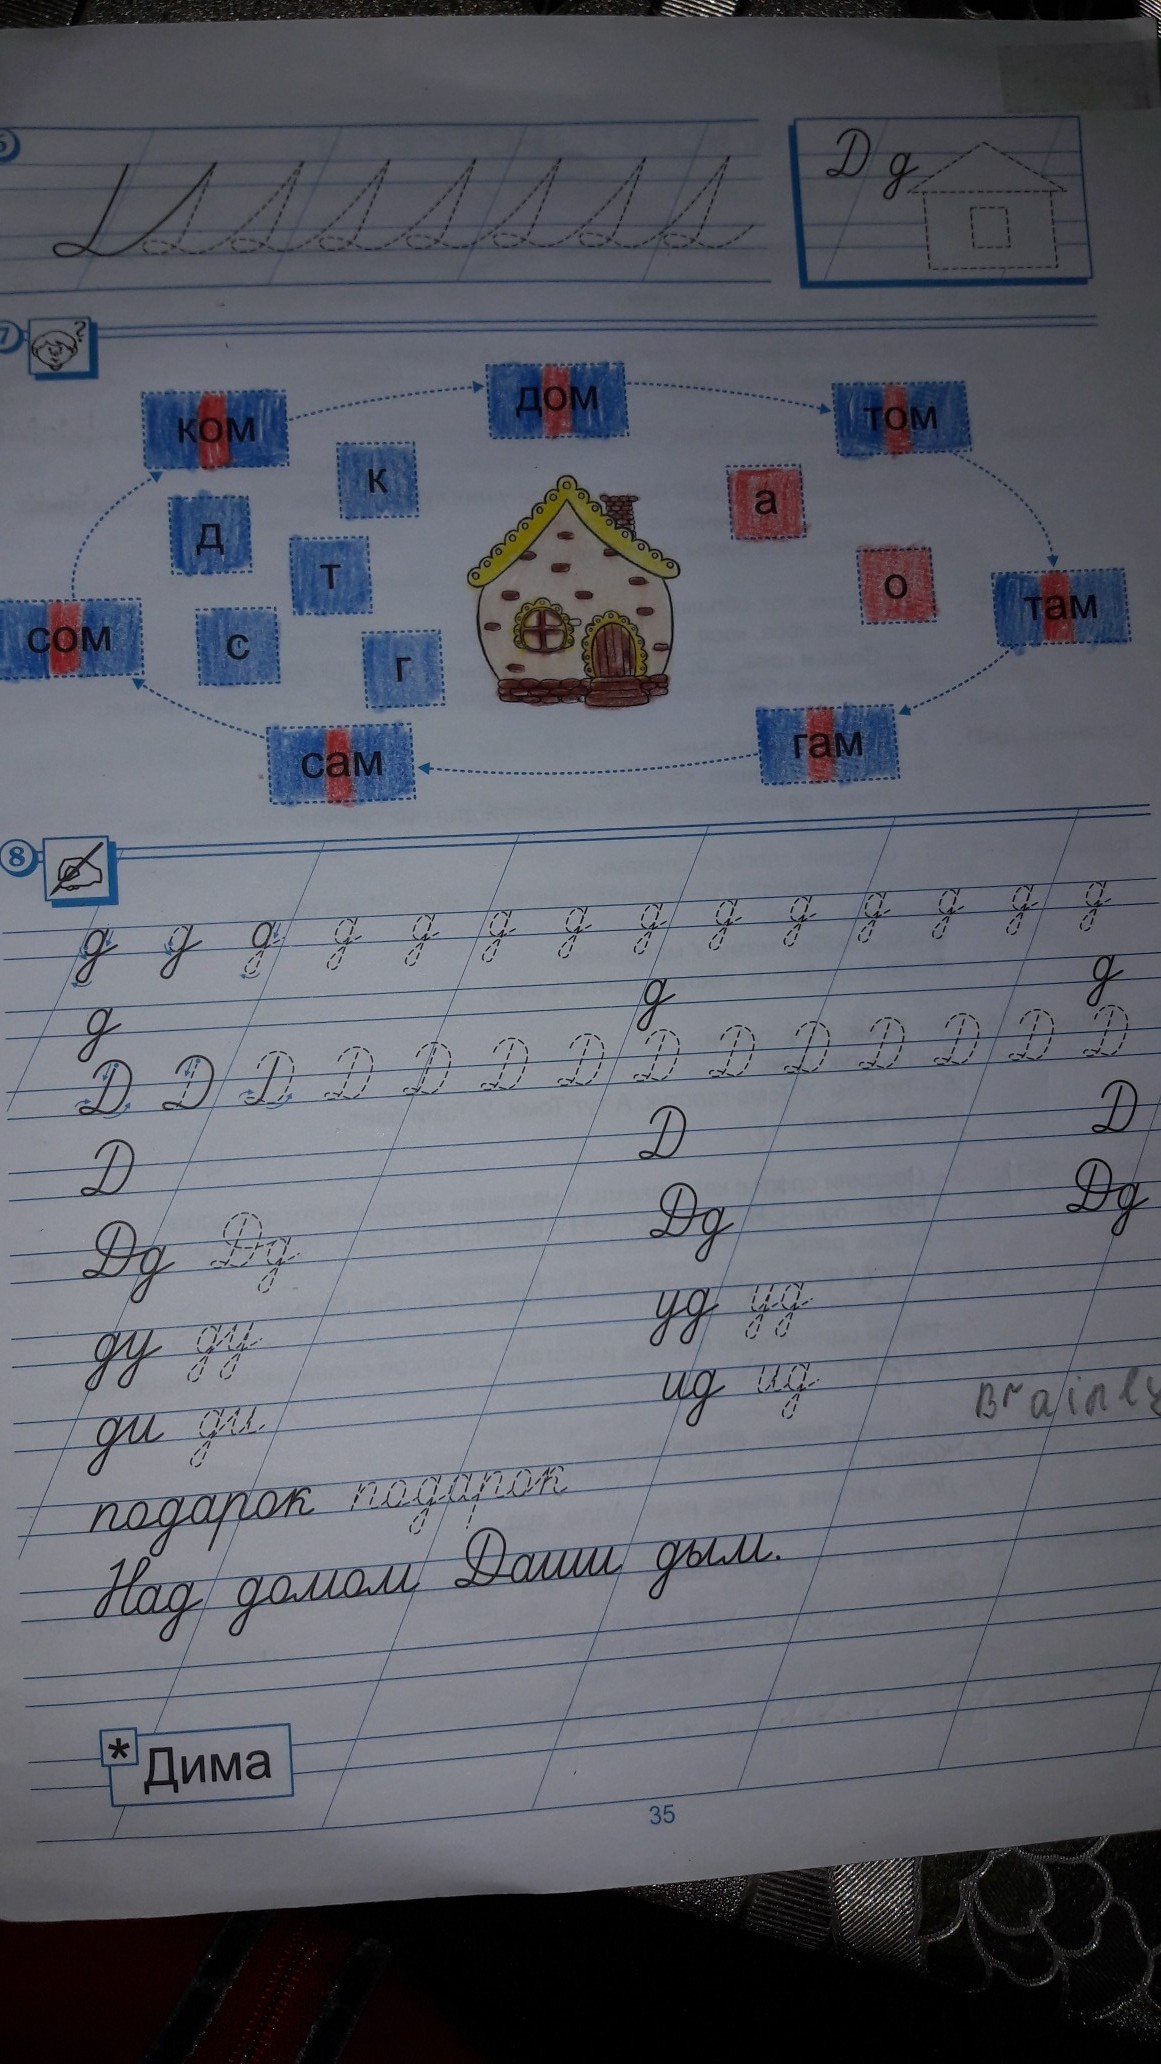 6
Д д
7
ком дом том
к
а
д
т
о
там
сом
с
г
сам гам
8
д д д д д д д д д д д д д д
д д д
Д Д Д Д Д Д Д Д Д Д Д Д Д Д
Д Д Д
Дд Дд Дд Дд
ду ду уд уд
ди ди ид ид
Brainly
подарок подарок
Над домом Даши дым.
* Дима
35